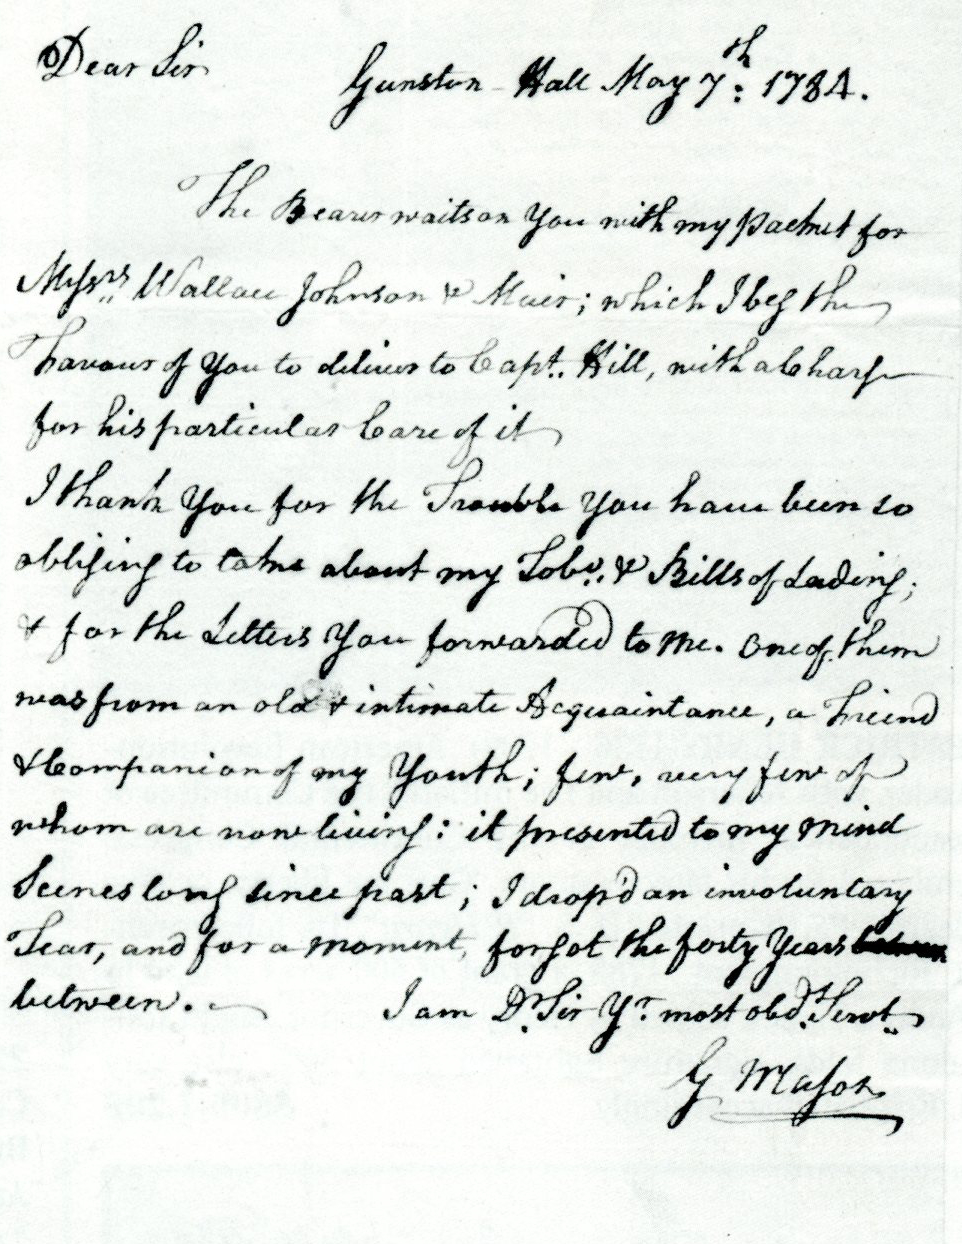 Dear Sir
Gunston-Hall May 7th: 1784.
The Bearer waits on You with my packet for
Messrs. Wallace Johnson & Muir; which I beg the
Favour of You to deliver to Capt. Hill, with a Charge
for his particular Care of it
I thank You for the Trouble You have been so
obliging to take about my Tobo. & Bills of Lading;
& for the Letters You forwarded to me. One of them
was from an old & intimate Acquaintance, a Friend
& Companion of my Youth; few, very few of
whom are now living: it presented to my mind
Scenes long since past; I drop'd an involuntary
Tear, and for a moment, forgot the forty Years
between.      I am Dr. Sir Yr. most obdt. Servt.
G Mason